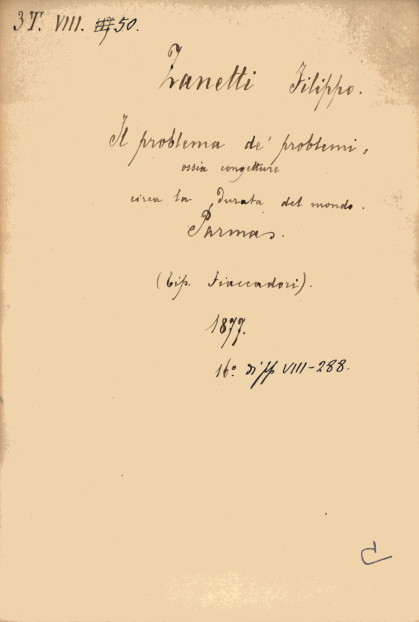 3 T. VIII. 50.
Zanetti Filippo.
Il problema de' problemi,
ossia congetture
circa la durata del mondo.
Parma.
(Tip. Fiaccadori).
1877.
16° di pp VIII-288.